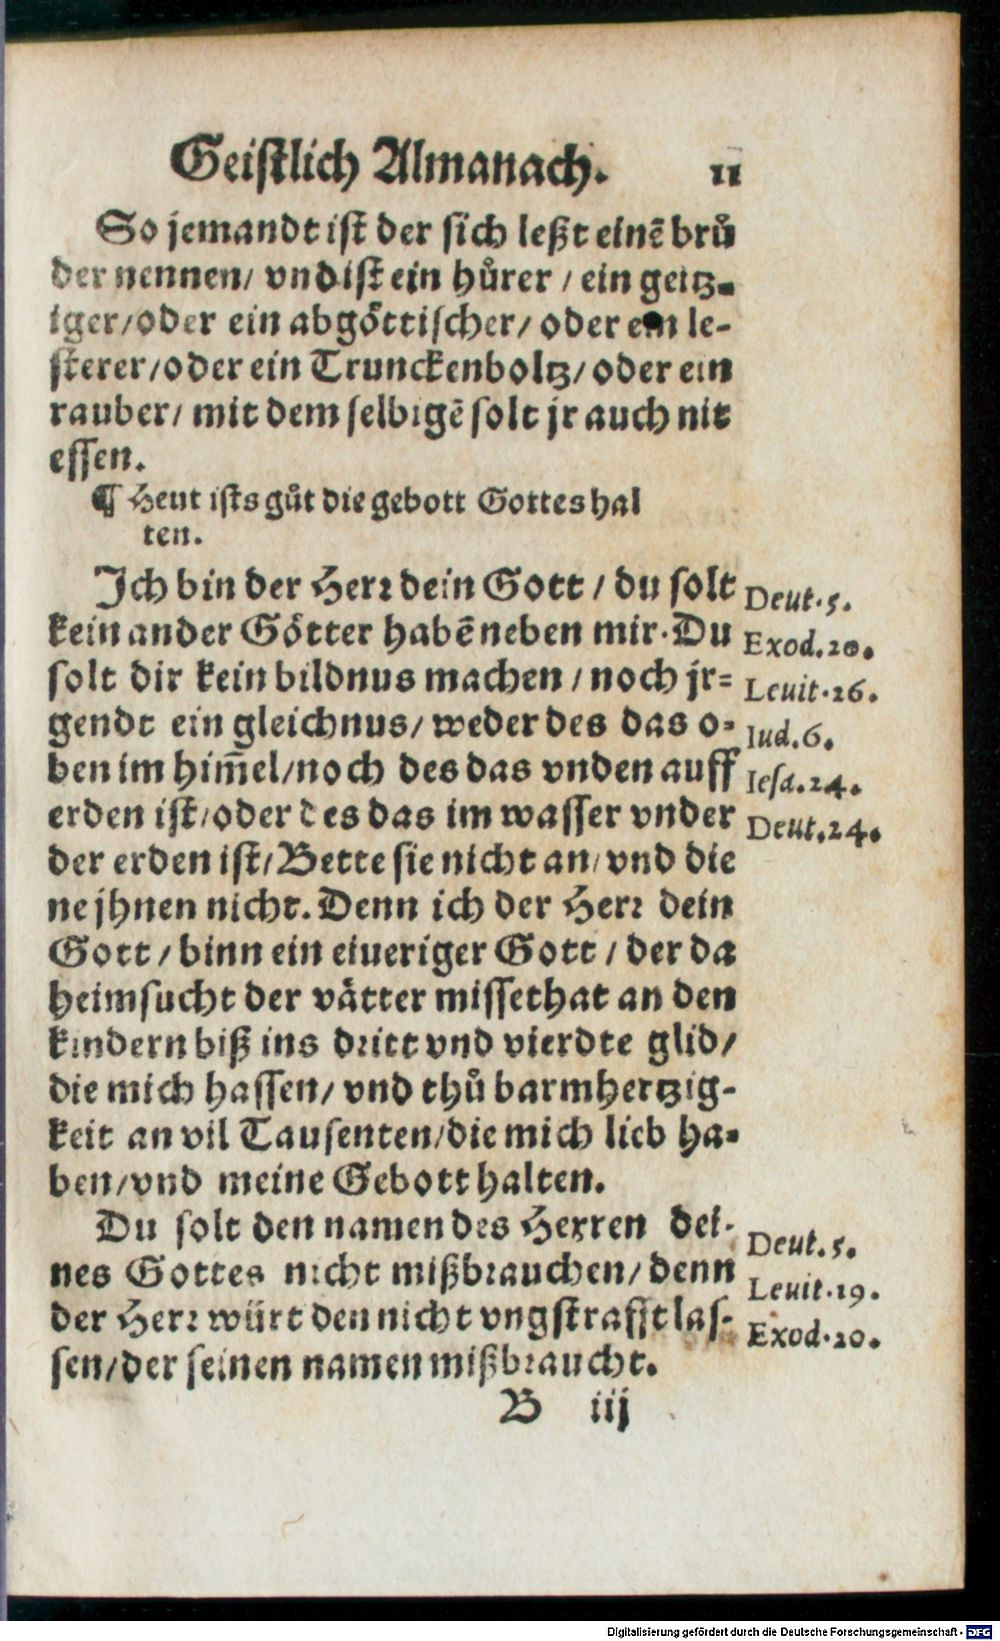 Geistlich Almanach. 11
So jemandt ist der sich leßt einē brů
der nennen/ vnd ist ein hůrer / ein geitz-
iger/oder ein abgöttischer/ oder ein le-
sterer/oder ein Trunckenboltz/oder ein
rauber/ mit dem selbigē solt jr auch nit
essen.
¶ Heut ists gůt die gebott Gottes hal
ten.
Ich bin der Herr dein Gott / du solt
kein ander Götter habē neben mir. Du
solt dir kein bildnus machen / noch jr-
gendt ein gleichnus/ weder des das o-
ben im him̄el/noch des das vnden auff
erden ist/oder des das im wasser vnder
der erden ist/Bette sie nicht an/vnd die
ne jhnen nicht. Denn ich der Herr dein
Gott / binn ein eiueriger Gott / der da
heimsucht der vätter missethat an den
kindern biß ins dritt vnd vierdte glid/
die mich hassen/ vnd thů barmhertzig-
keit an vil Tausenten/die mich lieb ha-
ben/vnd meine Gebott halten.
Du solt den namen des Herren dei-
nes Gottes nicht mißbrauchen/ denn
der Herr würt den nicht vngstrafft las-
sen/der seinen namen mißbraucht.
B iij
Deut.5.
Exod.20.
Leuit.26.
Iud.6.
Iesa.24.
Deut.24.
Deut.5.
Leuit.19.
Exod.20.
Digitalisierung gefördert durch die Deutsche Forschungsgemeinschaft - DFG